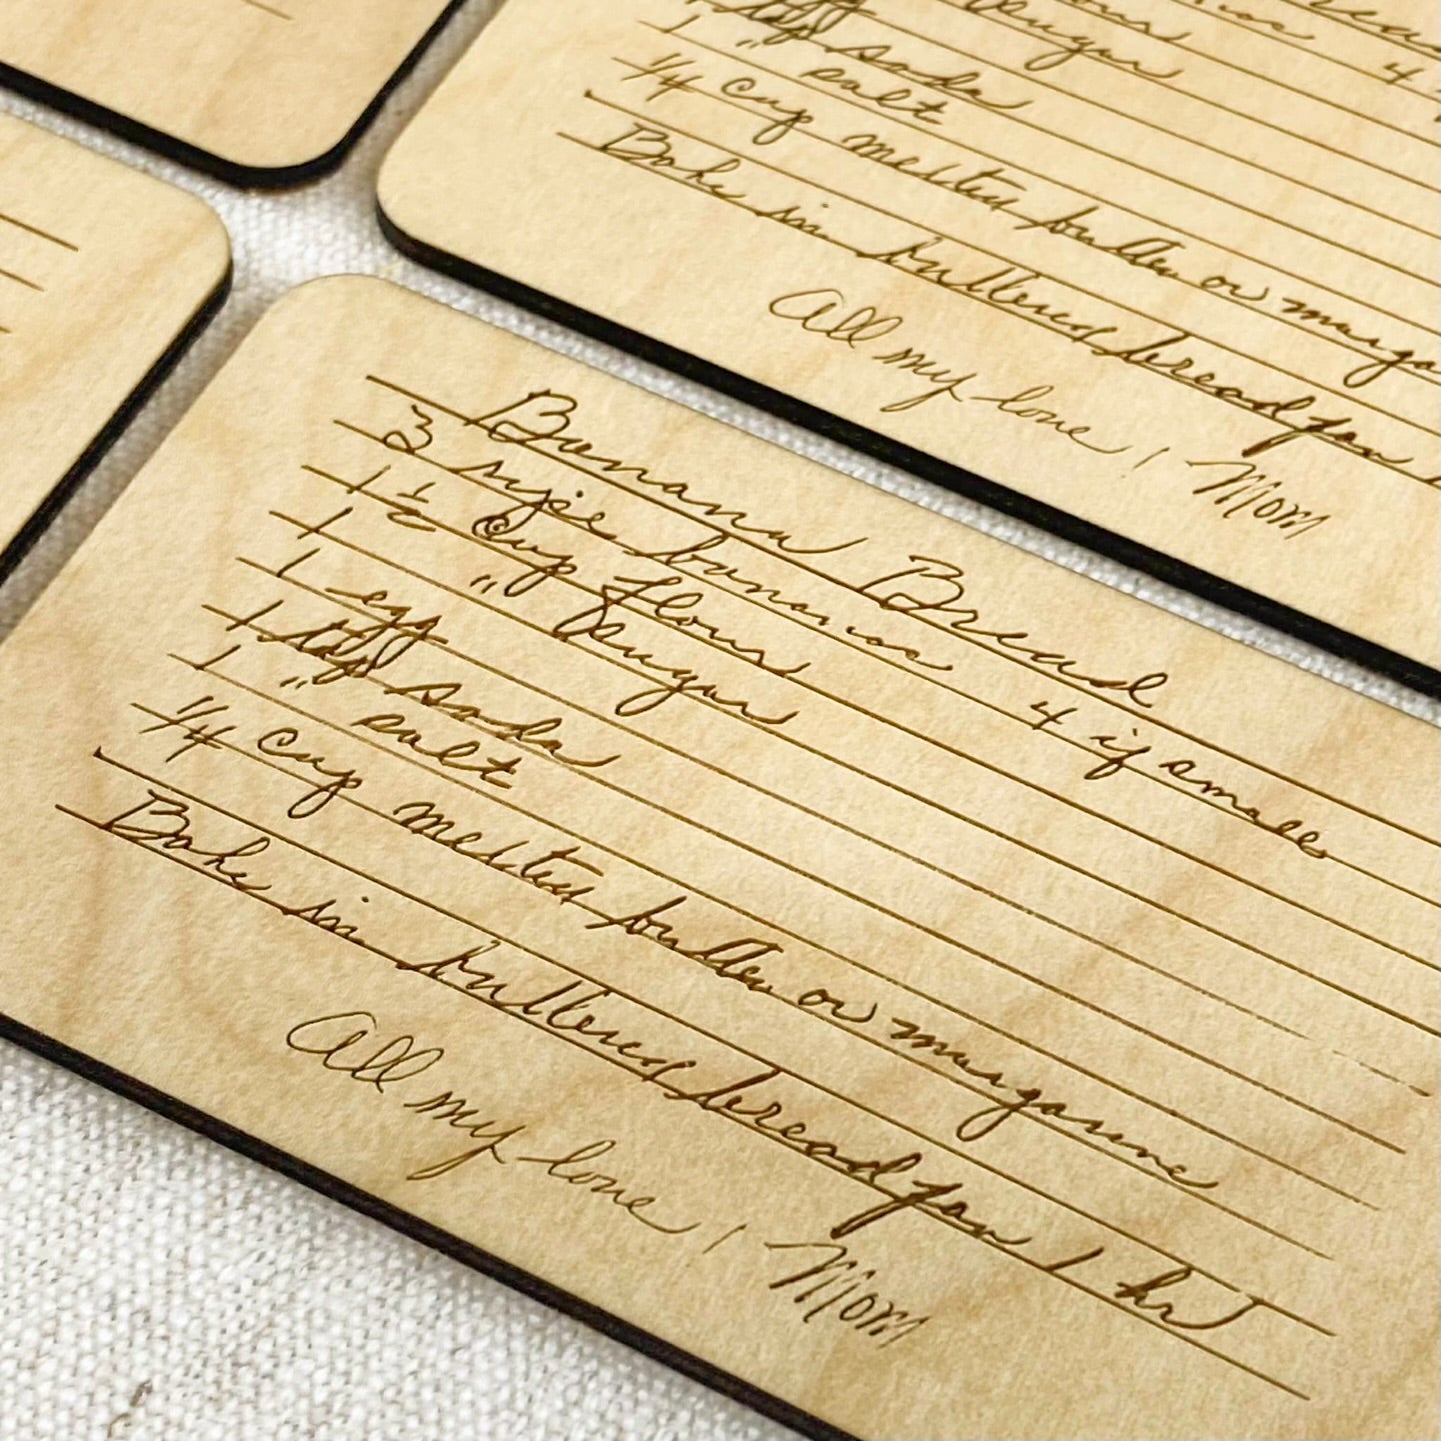 our bananas 4
" Sugar
1 tsp soda
1 " salt
1/4 cup melted butter or marga
Bake in buttered bread pan
All my love, Mom
Banana Bread
3 ripe bananas 4 if small
1 1/2 cup flour
1 " Sugar
1 egg
1 tsp soda
1 " salt
1/4 cup melted butter or margarine
Bake in buttered bread pan 1 hr
All my love, Mom